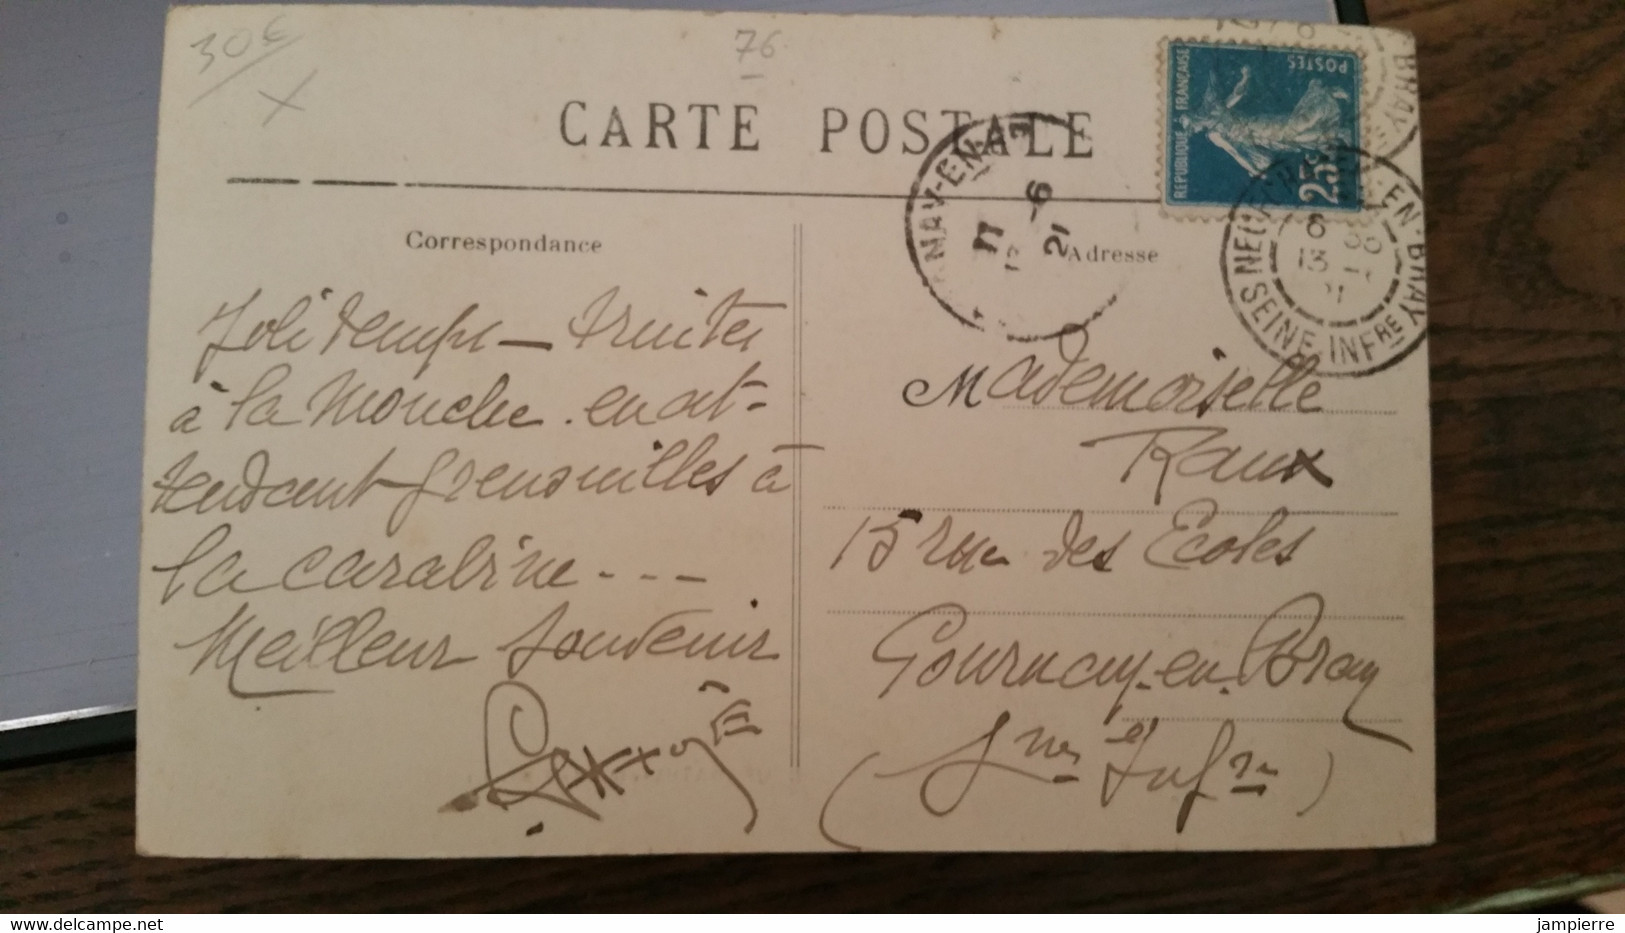 30€
76
CARTE POSTALE
POSTES
REPUBLIQUE FRANÇAISE
25c
NAY-EN
11
-6
21
BRAY
EN-BRAY
SEINE-INFRE
Correspondance
Adresse
Joli temps — truites
à la mouche. en at-
tendant grenouilles à
la carabine - - -
Meilleur souvenir
Mademoiselle
Raux
15 rue des Ecoles
Gournay-en-Bray
(Sne Infre)
jampierre